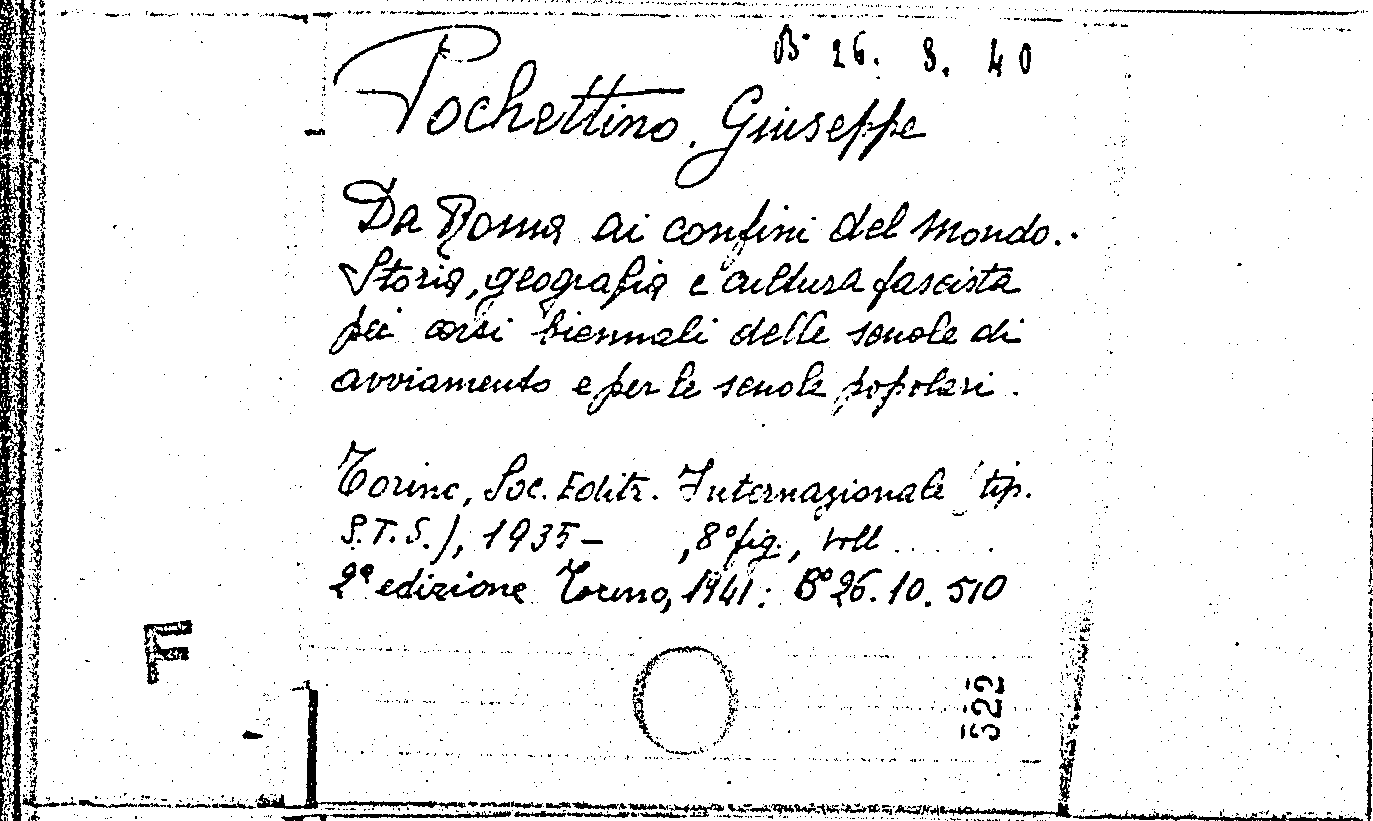 B° 26. 8. 40
Pochettino, Giuseppe
Da Roma ai confini del mondo.
Storia, geografia e cultura fascista
pei corsi biennali delle scuole di
avviamento e per le scuole popolari.
Torino, Soc. Editr. Internazionale (tip.
S.T.S.), 1935- , 8° fig., voll
2ª edizione Torino, 1941: B° 26. 10. 510
F
522